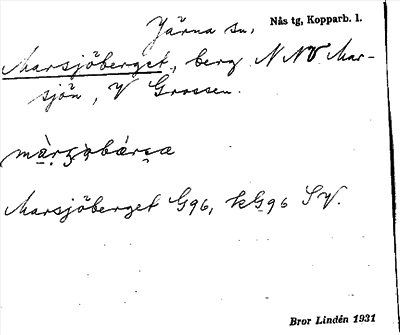 Järna sn. Nås tg, Kopparb. l.
Marsjöberget, berg NNV Mar-
sjön, V Grossen.
Marsjöberget G96, kG96 SV.
Bror Lindén 1931